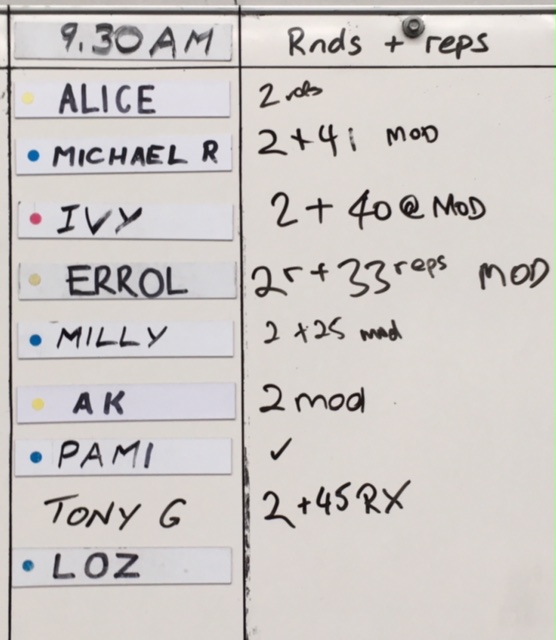 9.30AM Rnds + reps
ALICE 2 rds
MICHAEL R 2+41 MOD
IVY 2 + 40 @ MOD
ERROL 2r + 33 reps MOD
MILLY 2 +25 mod
AK 2 mod
PAMI ✓
TONY G 2 +45 RX
LOZ